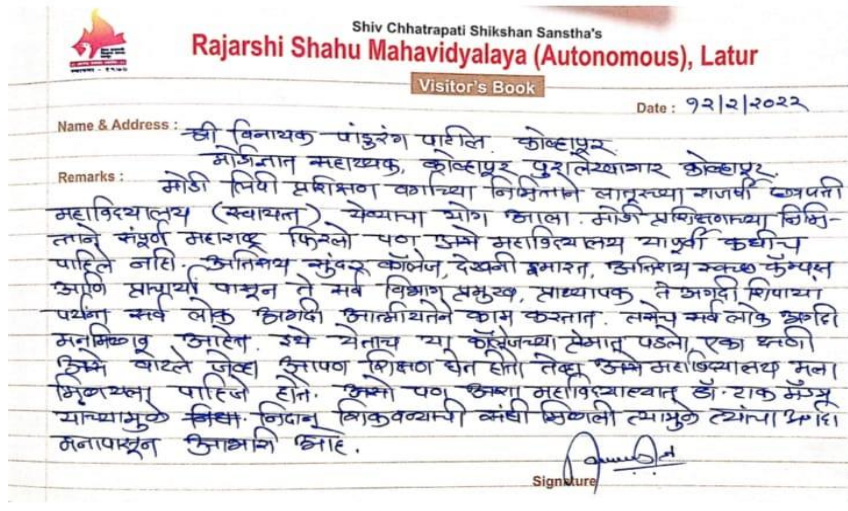 Shiv Chhatrapati Shikshan Sanstha's
Rajarshi Shahu Mahavidyalaya (Autonomous), Latur
Visitor's Book
Date : १२/२/२०२२
Name & Address : श्री विनायक पांडुरंग पाटील. कोल्हापूर
मोडीज्ञात सहाय्यक, कोल्हापूर पुरालेखागार कोल्हापूर.
Remarks : मोडी लिपी प्रशिक्षण वर्गाच्या निमित्ताने लातूरच्या राजर्षी छत्रपती
महाविद्यालय (स्वायत्त) येण्याचा योग आला. मोडी प्रशिक्षणाच्या निमि-
त्ताने संपूर्ण महाराष्ट्र फिरलो पण असे महाविद्यालय यापूर्वी कधीच
पाहिले नाही. अतिशय सुंदर कॉलेज, देखनी इमारत, अतिशय स्वच्छ कॅम्पस
आणि प्राचार्यां पासून ते सर्व विभाग प्रमुख, प्राध्यापक ते अगदी शिपाया
पर्यंत सर्व लोक अगदी आत्मीयतेने काम करतात. तसेच सर्व लोक अगदि
मनमिळावू आहेत. इथे येताच या कॉलेजच्या प्रेमात पडलो. एका क्षणी
असे वाटले जेव्हा आपण शिक्षण घेत होतो तेव्हा असे महाविद्यालय मला
मिळायला पाहिजे होते. असो पण अशा महाविद्यालयात डॉ.
याच्यामुळे निदान शिकवन्याची संधी मिळाली त्यामुळे त्यांचा अगदि
मनापासून आभारी आहे.
Signature